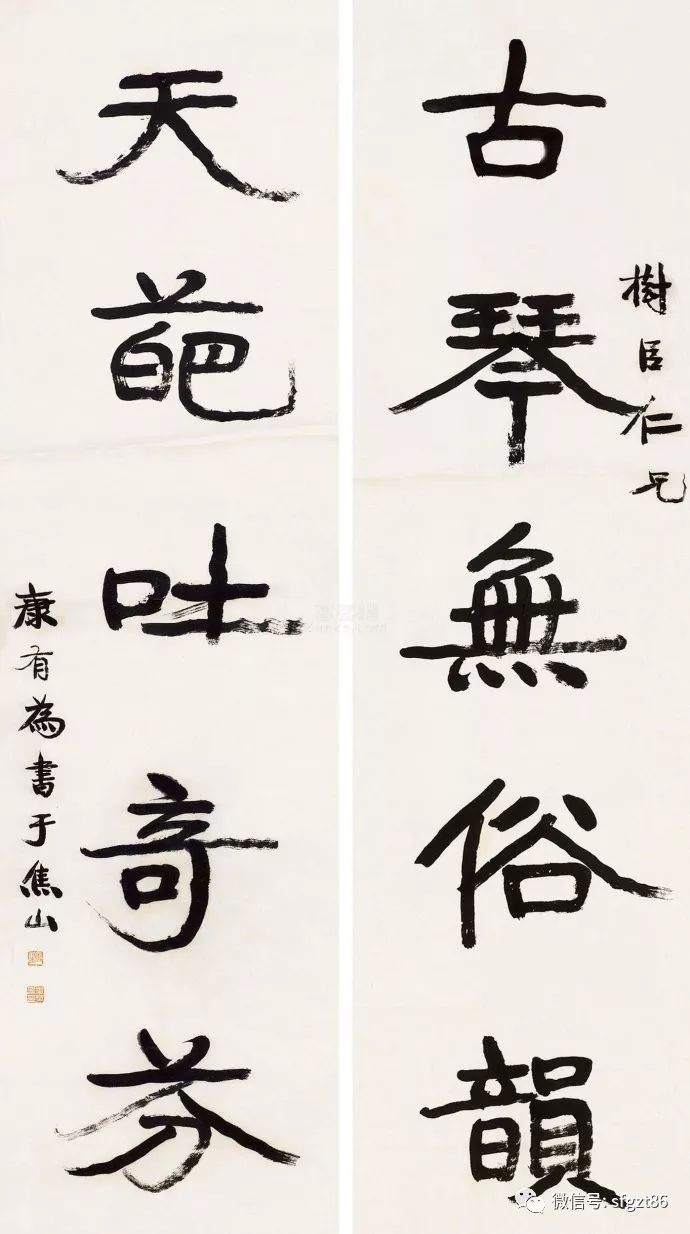 古琴無俗韻
樹臣仁兄
天葩吐奇芬
康有為書于焦山
微信号: sfgzt86